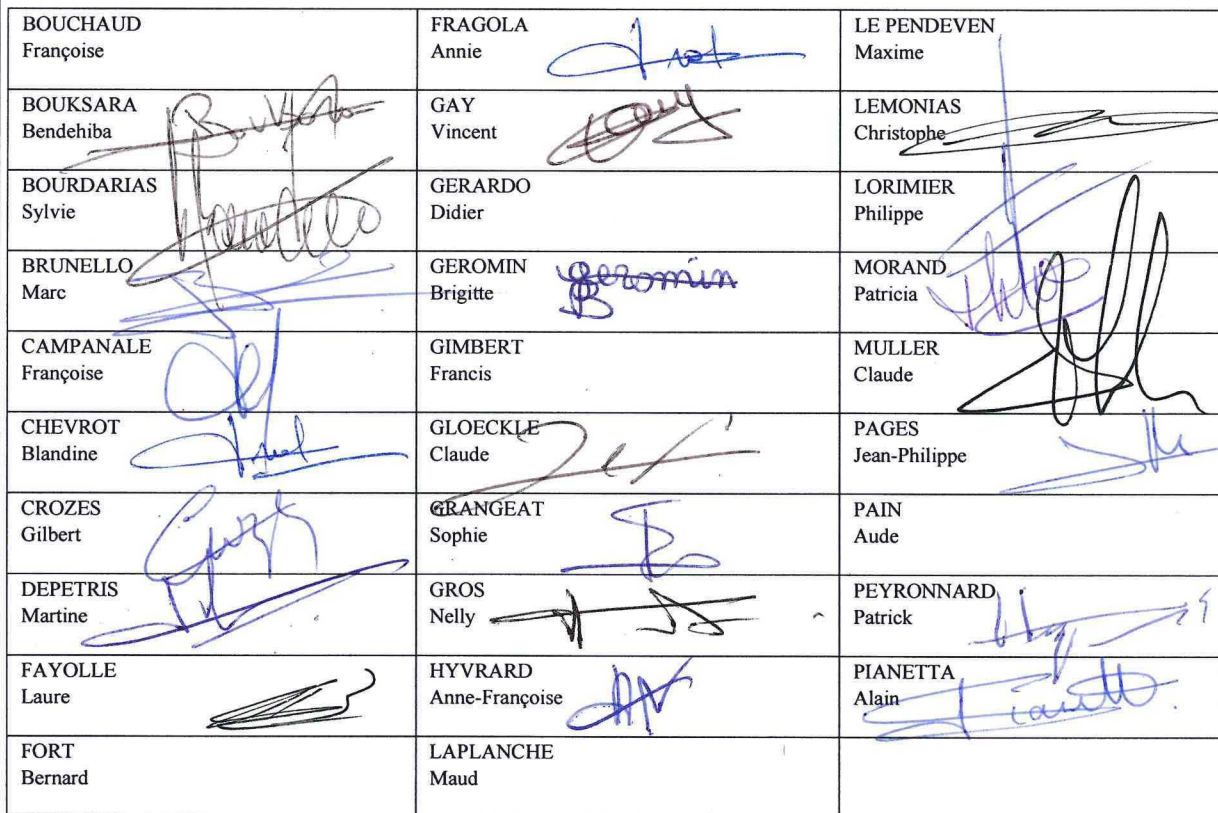 BOUCHAUD
Françoise
FRAGOLA
Annie
LE PENDEVEN
Maxime
BOUKSARA
Bendehiba
GAY
Vincent
LEMONIAS
Christophe
BOURDARIAS
Sylvie
GERARDO
Didier
LORIMIER
Philippe
BRUNELLO
Marc
GEROMIN
Brigitte
geromin
B
MORAND
Patricia
CAMPANALE
Françoise
GIMBERT
Francis
MULLER
Claude
CHEVROT
Blandine
GLOECKLE
Claude
PAGES
Jean-Philippe
CROZES
Gilbert
GRANGEAT
Sophie
PAIN
Aude
DEPETRIS
Martine
GROS
Nelly
PEYRONNARD
Patrick
FAYOLLE
Laure
HYVRARD
Anne-Françoise
PIANETTA
Alain
FORT
Bernard
LAPLANCHE
Maud